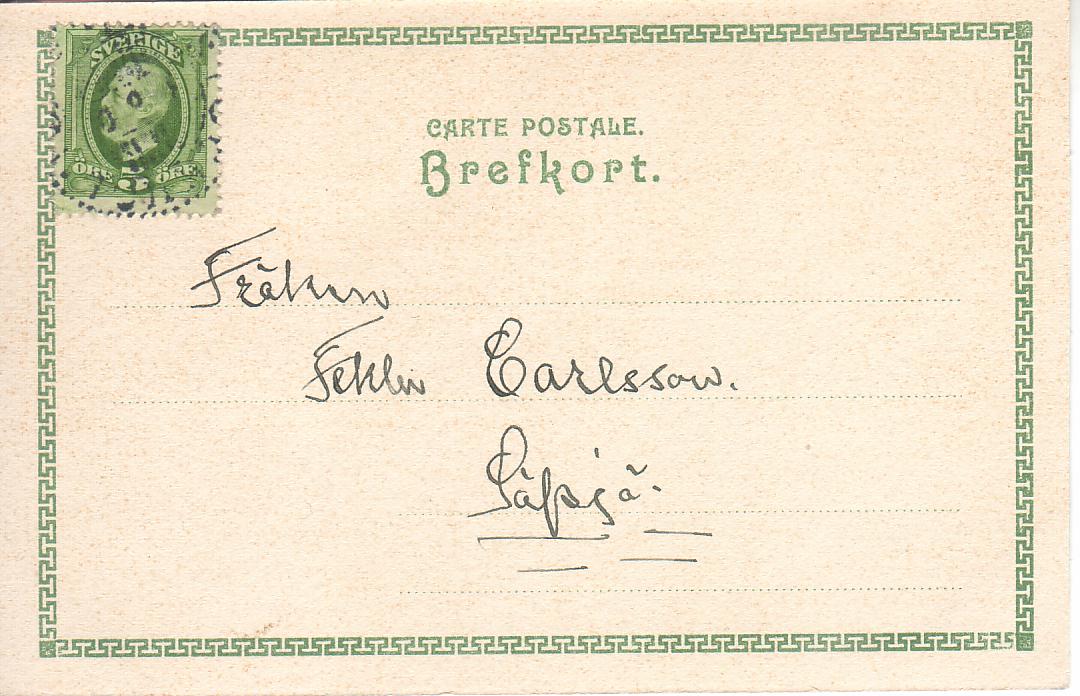 SVERIGE
ÖRE 5 ÖRE
CARTE POSTALE.
Brefkort.
Fröken
Carlsson.